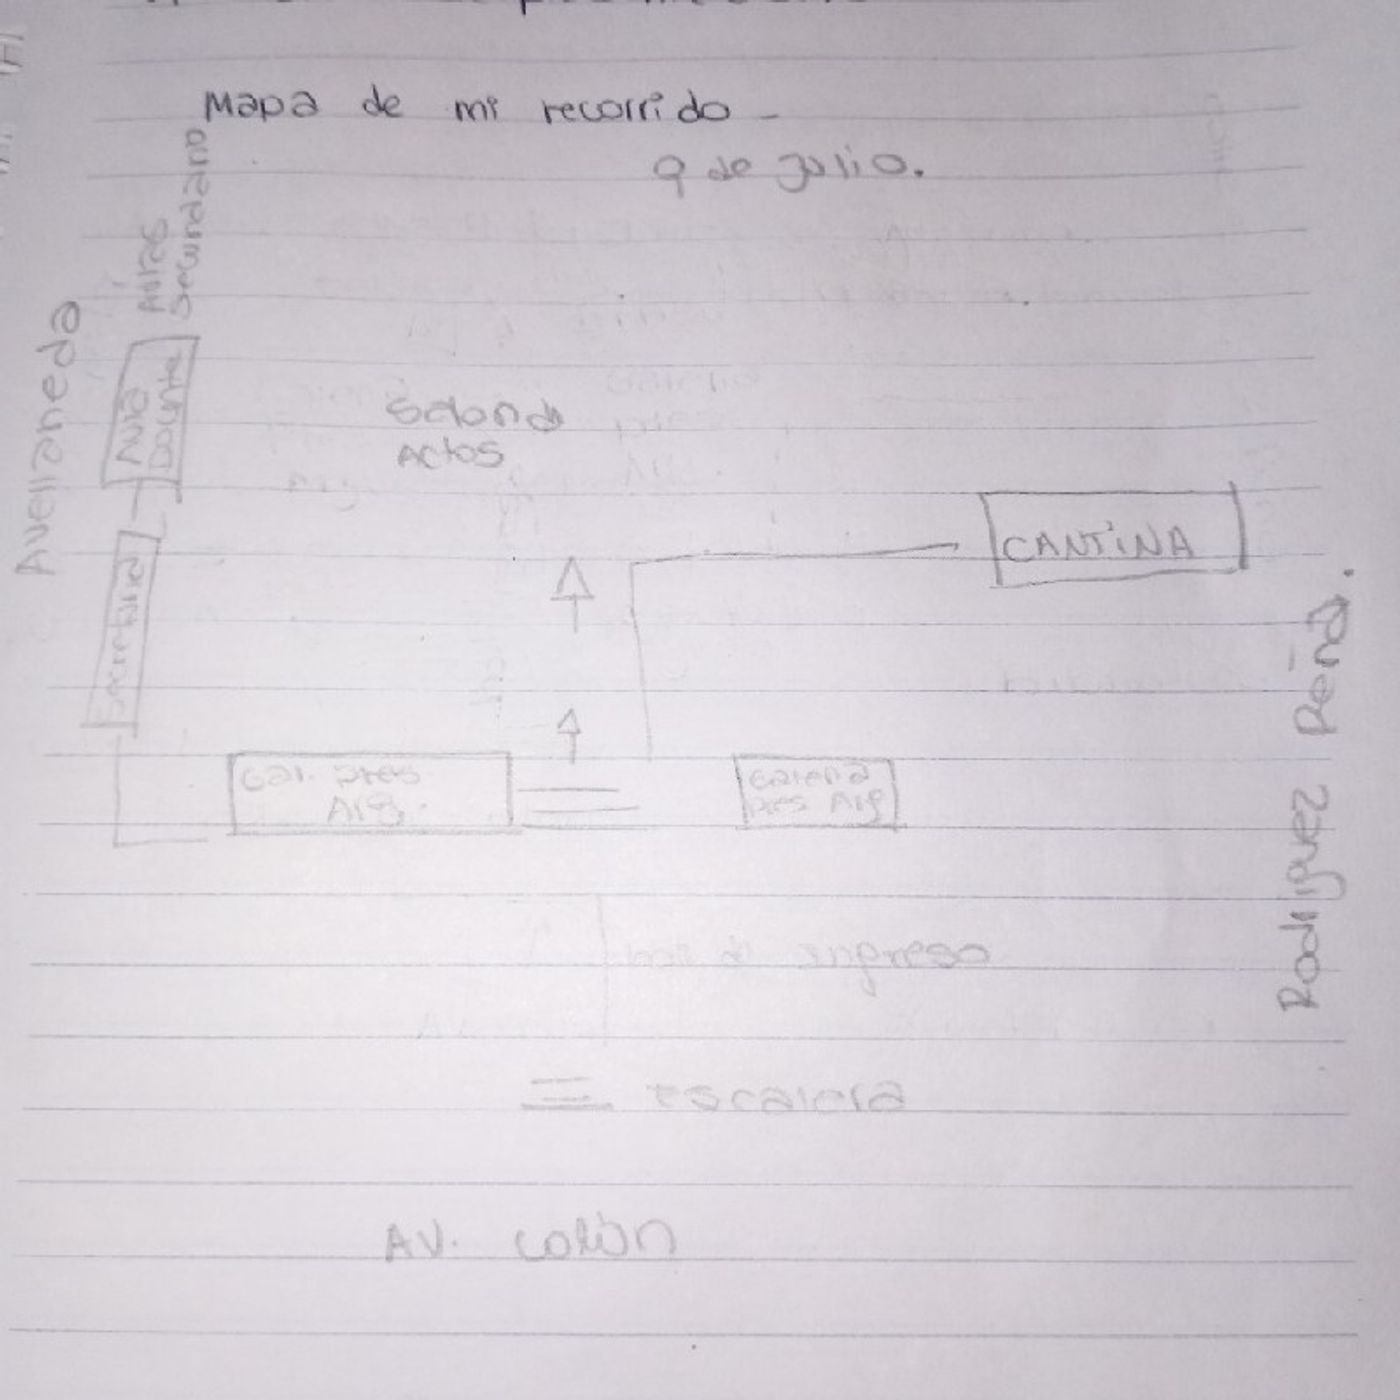 Mapa de mi recorrido -
9 de Julio.
Avellaneda
Aulas
Secundario
Aula
Docente
Salon de
Actos
CANTINA
Secretaria
Gal. Pres
Arg.
Galeria
Pres Arg
Rodriguez Peña.
ingreso
= Escalera
AV. Colón